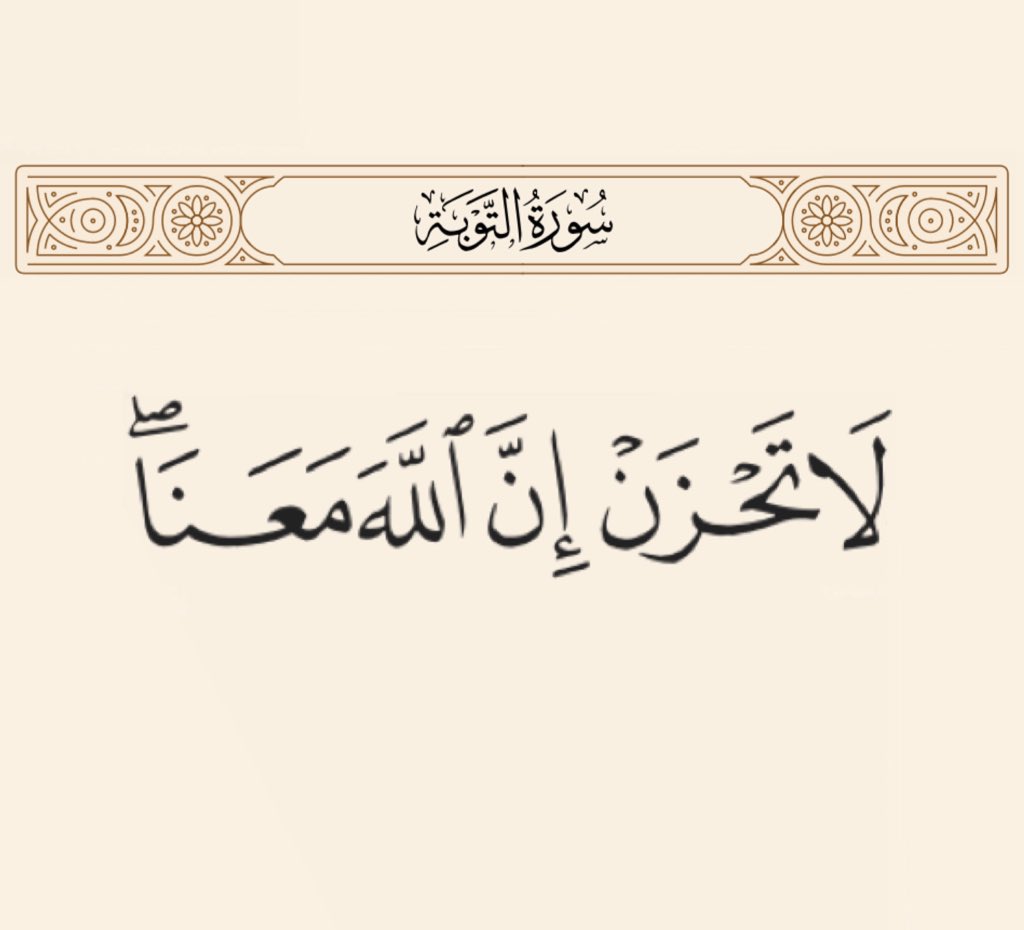 سُورَةُ التَّوْبَةِ
لَا تَحْزَنْ إِنَّ ٱللَّهَ مَعَنَاۖ